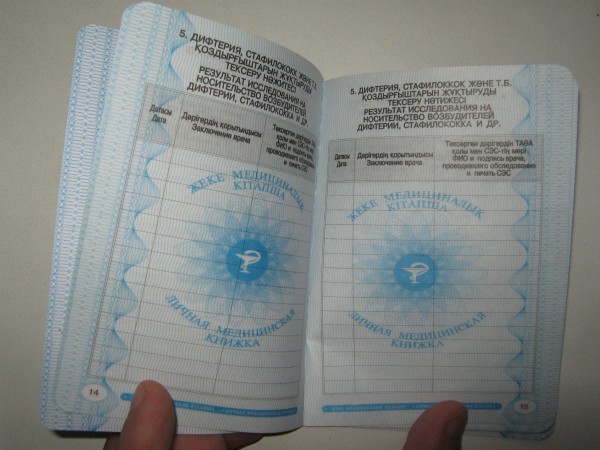 5. ДИФТЕРИЯ, СТАФИЛОКОКК ЖӘНЕ Т.Б.
ҚОЗДЫРҒЫШТАРЫН ЖҰҚТЫРУДЫ
ТЕКСЕРУ НӘТИЖЕСІ
РЕЗУЛЬТАТ ИССЛЕДОВАНИЯ НА
НОСИТЕЛЬСТВО ВОЗБУДИТЕЛЕЙ
ДИФТЕРИИ, СТАФИЛОКОККА И ДР.
Датасы
Дата
Дәрігердің қорытындысы
Заключение врача
Тексерген дәрігердің
қолы мен СЭС-тің
ФИО и подпись врача,
проводившего обследование
и печать СЭС
ЖЕКЕ МЕДИЦИНАЛЫҚ
КІТАПША
ЛИЧНАЯ МЕДИЦИНСКАЯ
КНИЖКА
14
5. ДИФТЕРИЯ, СТАФИЛОКОКК ЖӘНЕ Т.Б.
ҚОЗДЫРҒЫШТАРЫН ЖҰҚТЫРУДЫ
ТЕКСЕРУ НӘТИЖЕСІ
РЕЗУЛЬТАТ ИССЛЕДОВАНИЯ НА
НОСИТЕЛЬСТВО ВОЗБУДИТЕЛЕЙ
ДИФТЕРИИ, СТАФИЛОКОККА И ДР.
Датасы
Дата
Дәрігердің қорытындысы
Заключение врача
Тексерген дәрігердің ТАӘА
қолы мен СЭС-тің мөрі
ФИО и подпись врача,
проводившего обследование
и печать СЭС
ЖЕКЕ МЕДИЦИНАЛЫҚ
КІТАПША
ЛИЧНАЯ МЕДИЦИНСКАЯ
КНИЖКА
15